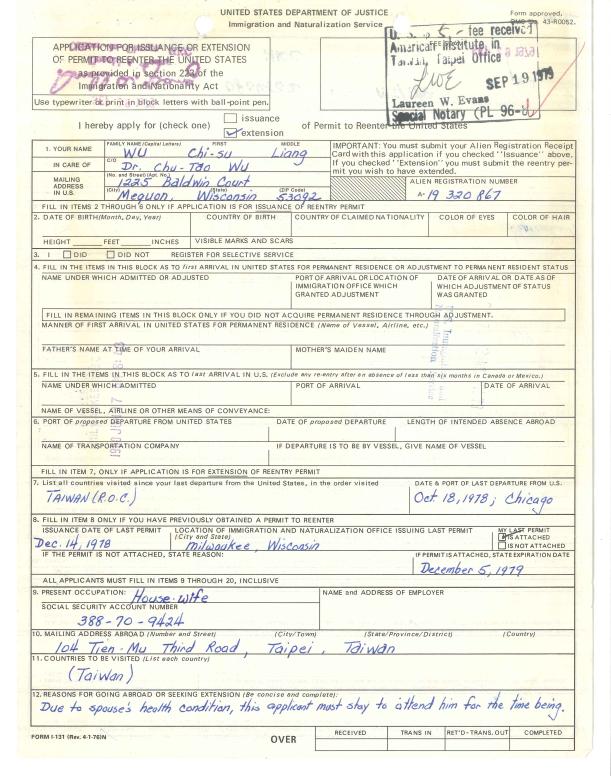 UNITED STATES DEPARTMENT OF JUSTICE
Immigration and Naturalization Service
Form approved,
43-R0082.
APPLICATION FOR ISSUANCE OR EXTENSION
OF PERMIT TO REENTER THE UNITED STATES
as provided in section 223 of the
Immigration and Nationality Act
Use typewriter or print in block letters with ball-point pen.
fee received
American Institute in
Taiwan, Taipei Office
SEP 19 1979
Laureen W. Evans
Special Notary (PL 96-8)
I hereby apply for (check one)
issuance
extension
of Permit to Reenter the United States
1. YOUR NAME
FAMILY NAME(Capital Letters) FIRST MIDDLE
WU Chi-su Liang
IN CARE OF
C/O
Dr. Chu-Tao Wu
MAILING ADDRESS IN U.S.
(No. and Street) (Apt. No.)
1225 Baldwin Court
(City) (State) (ZIP Code)
Mequon, Wisconsin 53092
IMPORTANT: You must submit your Alien Registration Receipt
Card with this application if you checked "Issuance" above.
If you checked "Extension" you must submit the reentry per-
mit you wish to have extended.
ALIEN REGISTRATION NUMBER
A- 19 320 867
FILL IN ITEMS 2 THROUGH 6 ONLY IF APPLICATION IS FOR ISSUANCE OF REENTRY PERMIT
2. DATE OF BIRTH(Month, Day, Year) COUNTRY OF BIRTH COUNTRY OF CLAIMED NATIONALITY COLOR OF EYES COLOR OF HAIR
HEIGHT FEET INCHES VISIBLE MARKS AND SCARS
3. I DID DID NOT REGISTER FOR SELECTIVE SERVICE
4. FILL IN THE ITEMS IN THIS BLOCK AS TO first ARRIVAL IN UNITED STATES FOR PERMANENT RESIDENCE OR ADJUSTMENT TO PERMANENT RESIDENT STATUS
NAME UNDER WHICH ADMITTED OR ADJUSTED
PORT OF ARRIVAL OR LOCATION OF
IMMIGRATION OFFICE WHICH
GRANTED ADJUSTMENT
DATE OF ARRIVAL OR DATE AS
OF WHICH ADJUSTMENT OF STATUS
WAS GRANTED
FILL IN REMAINING ITEMS IN THIS BLOCK ONLY IF YOU DID NOT ACQUIRE PERMANENT RESIDENCE THROUGH ADJUSTMENT.
MANNER OF FIRST ARRIVAL IN UNITED STATES FOR PERMANENT RESIDENCE (Name of Vessel, Airline, etc.)
FATHER'S NAME AT TIME OF YOUR ARRIVAL MOTHER'S MAIDEN NAME
5. FILL IN THE ITEMS IN THIS BLOCK AS TO last ARRIVAL IN U.S. (Exclude any re-entry after an absence of less than six months in Canada or Mexico.)
NAME UNDER WHICH ADMITTED PORT OF ARRIVAL DATE OF ARRIVAL
NAME OF VESSEL, AIRLINE OR OTHER MEANS OF CONVEYANCE:
6. PORT OF proposed DEPARTURE FROM UNITED STATES DATE OF proposed DEPARTURE LENGTH OF INTENDED ABSENCE ABROAD
NAME OF TRANSPORTATION COMPANY IF DEPARTURE IS TO BE BY VESSEL, GIVE NAME OF VESSEL
FILL IN ITEM 7, ONLY IF APPLICATION IS FOR EXTENSION OF REENTRY PERMIT
7. List all countries visited since your last departure from the United States, in the order visited DATE & PORT OF LAST DEPARTURE FROM U.S.
TAIWAN (R.O.C.) Oct 18, 1978; Chicago
8. FILL IN ITEM 8 ONLY IF YOU HAVE PREVIOUSLY OBTAINED A PERMIT TO REENTER
ISSUANCE DATE OF LAST PERMIT LOCATION OF IMMIGRATION AND NATURALIZATION OFFICE ISSUING LAST PERMIT MY LAST PERMIT
(City and State) IS ATTACHED
Dec. 14, 1978 Milwaukee, Wisconsin IS NOT ATTACHED
IF THE PERMIT IS NOT ATTACHED, STATE REASON: IF PERMIT IS ATTACHED, STATE EXPIRATION DATE
December 5, 1979
ALL APPLICANTS MUST FILL IN ITEMS 9 THROUGH 20, INCLUSIVE
9. PRESENT OCCUPATION: House-wife NAME and ADDRESS OF EMPLOYER
SOCIAL SECURITY ACCOUNT NUMBER
388-70-9424
10. MAILING ADDRESS ABROAD (Number and Street) (City/Town) (State/Province/District) (Country)
104 Tien-Mu Third Road, Taipei, Taiwan
11. COUNTRIES TO BE VISITED (List each country)
(Taiwan)
12. REASONS FOR GOING ABROAD OR SEEKING EXTENSION (Be concise and complete):
Due to spouse's health condition, this applicant must stay to attend him for the time being.
FORM I-131 (Rev. 4-1-76)N OVER
RECEIVED TRANS IN RET'D-TRANS. OUT COMPLETED